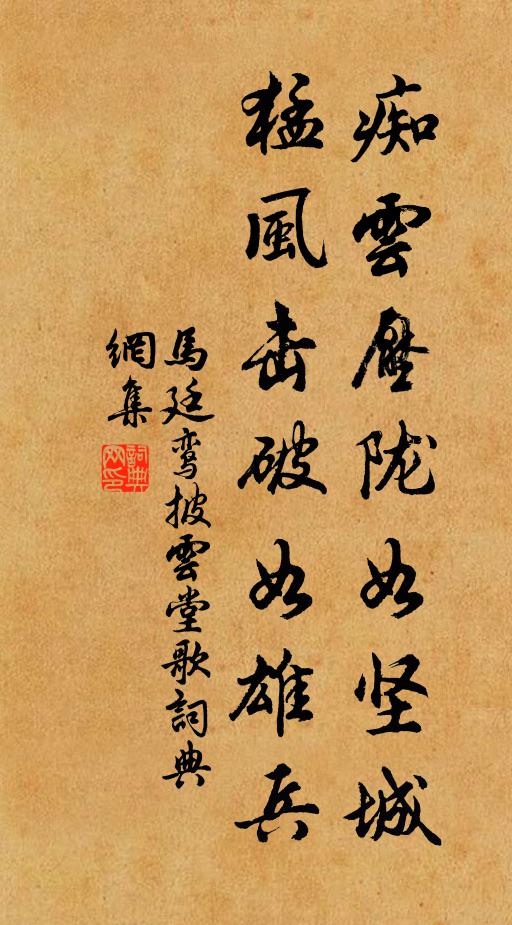 痴雲壓陇如坚城
猛風击破如雄兵
馬廷鸾披雲堂歌詞典
網集
詞典网印